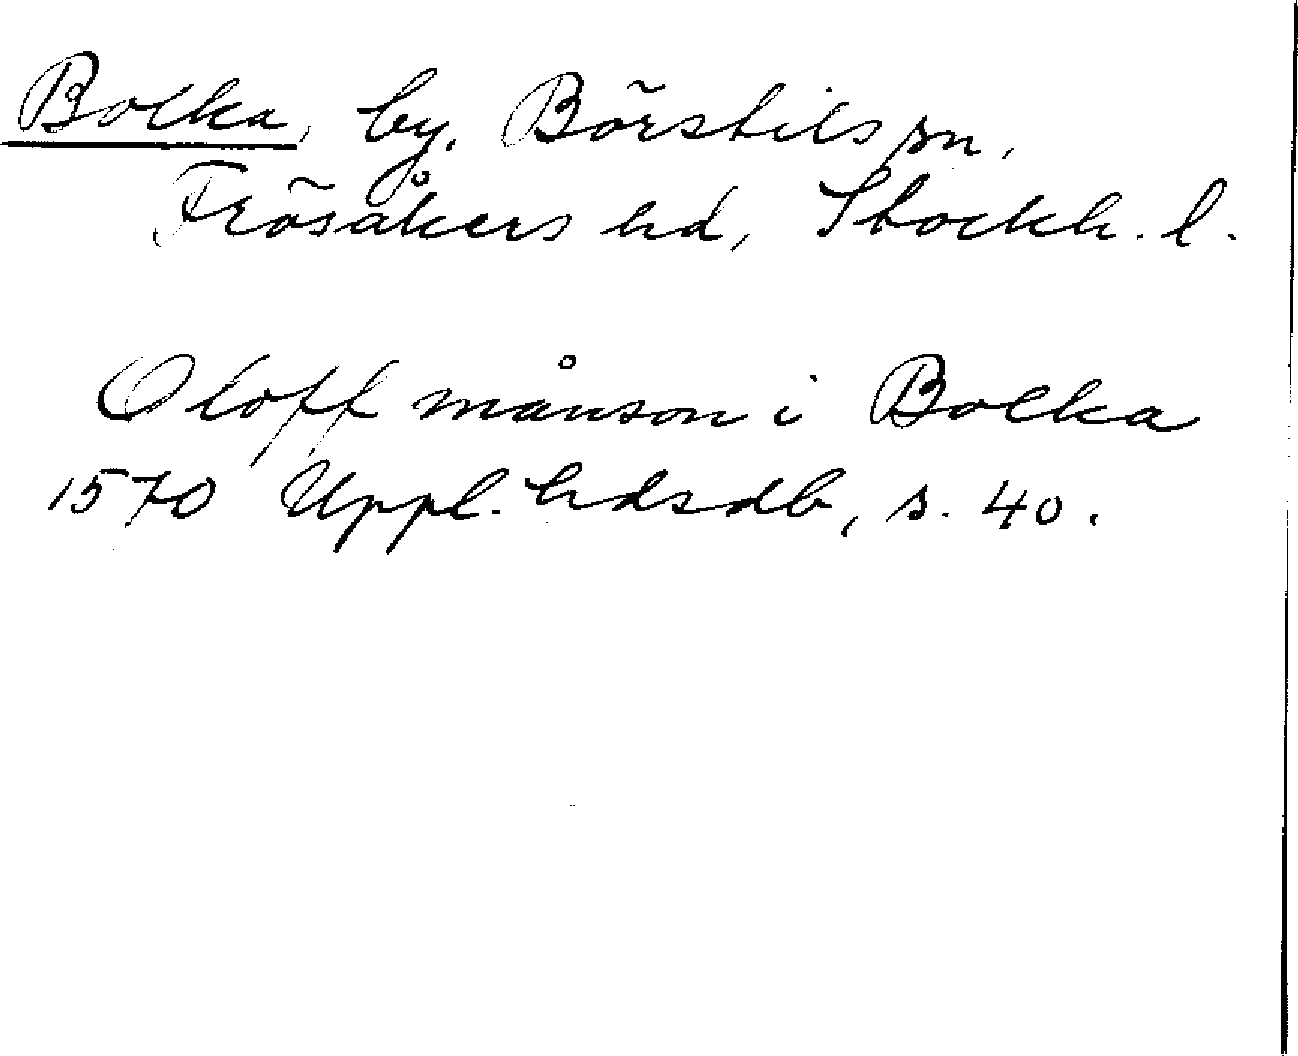 Bolka, by. Börstils sn,
Frösåkers hd, Stockh. l.
Oloff månson i Bolka
1570 Uppl. hdsdb, s. 40.